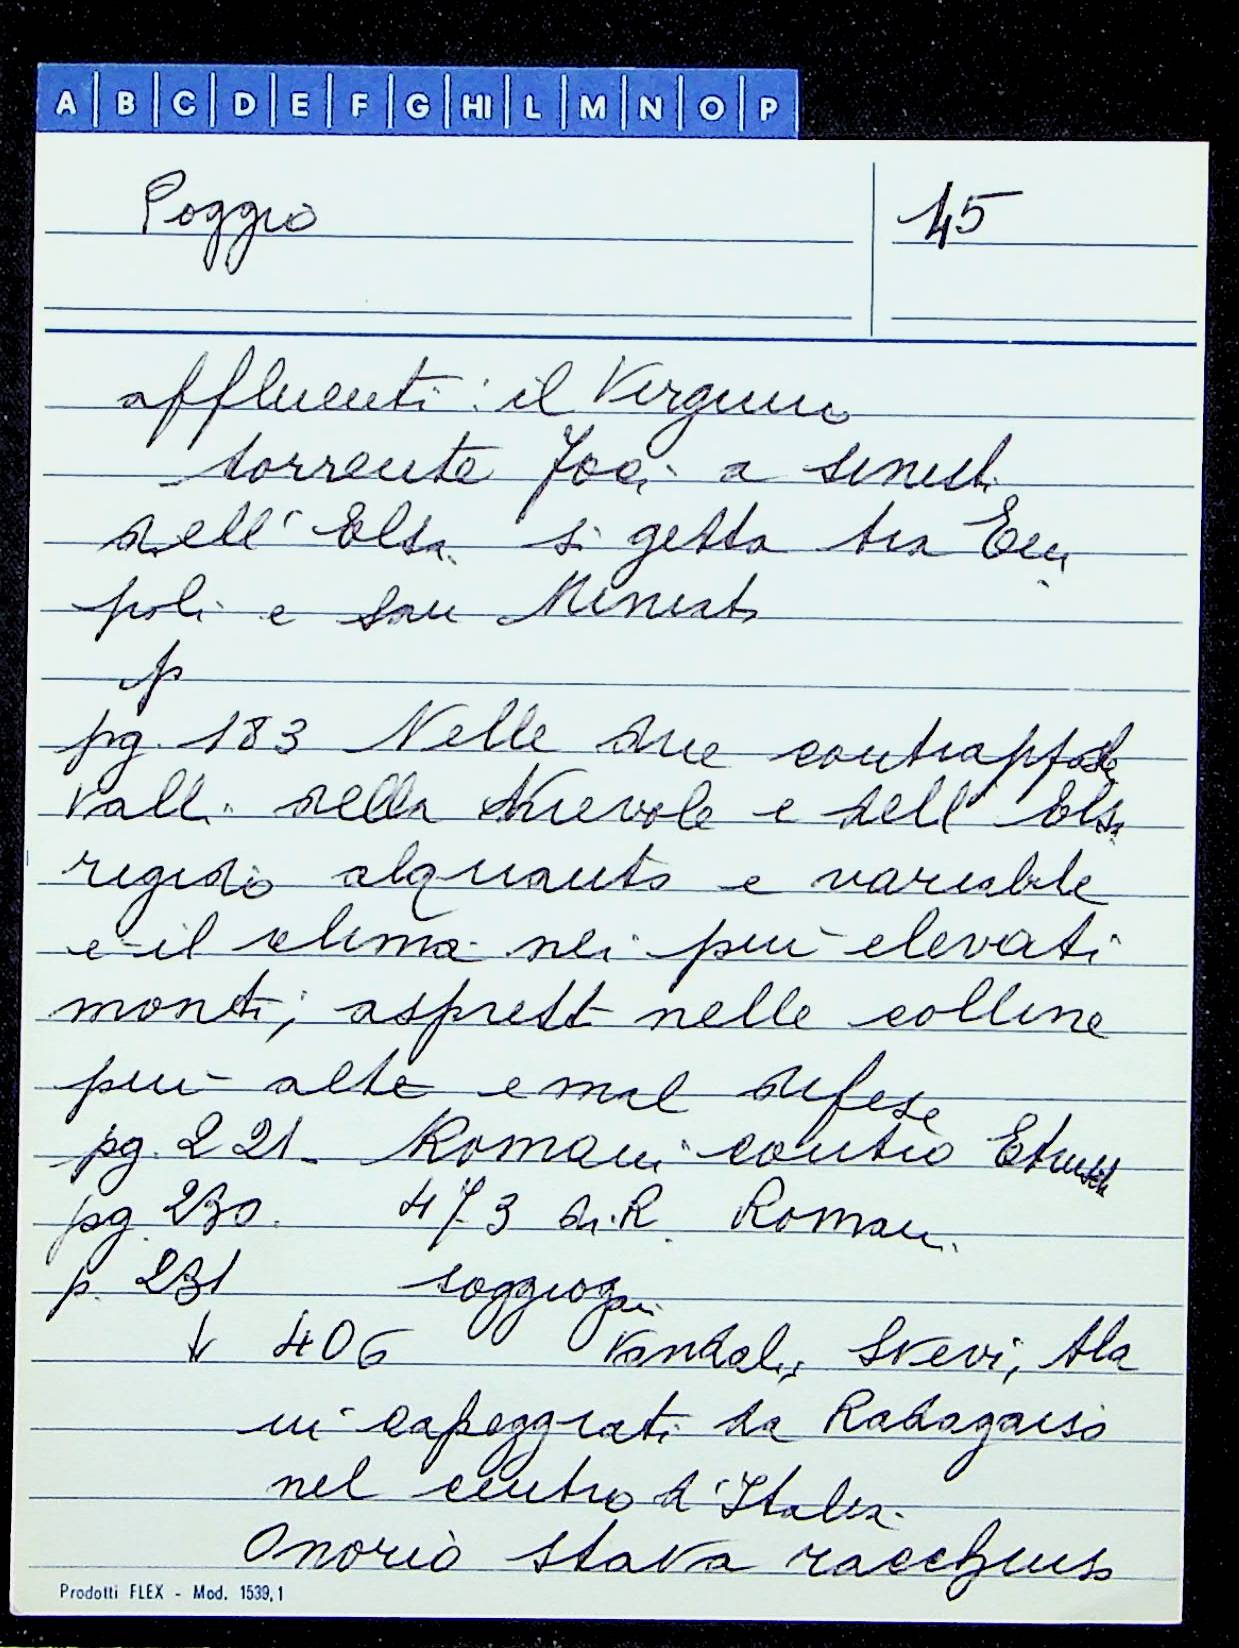 A B C D E F G HI L M N O P
Poggio 15
affluenti: il
torrente a sinist.
dell'Elsa si getta tra Em
poli e San Miniato
p
pg. 183 Nelle due contrapposte
valli della Nievole e dell'Elsa
rigido alquanto e variabile
e il clima nei più elevati
monti; aspretto nelle colline
più alte e mal difese
pg. 221 - Romani contro Etruschi
pg. 230. 473 di R. Romani
p. 231 soggioga
↓ 406 Vandali, Svevi, Ala
ni capeggiati da Radagaiso
nel centro d'Italia.
Onorio stava racchiuso
Prodotti FLEX - Mod. 1539,1